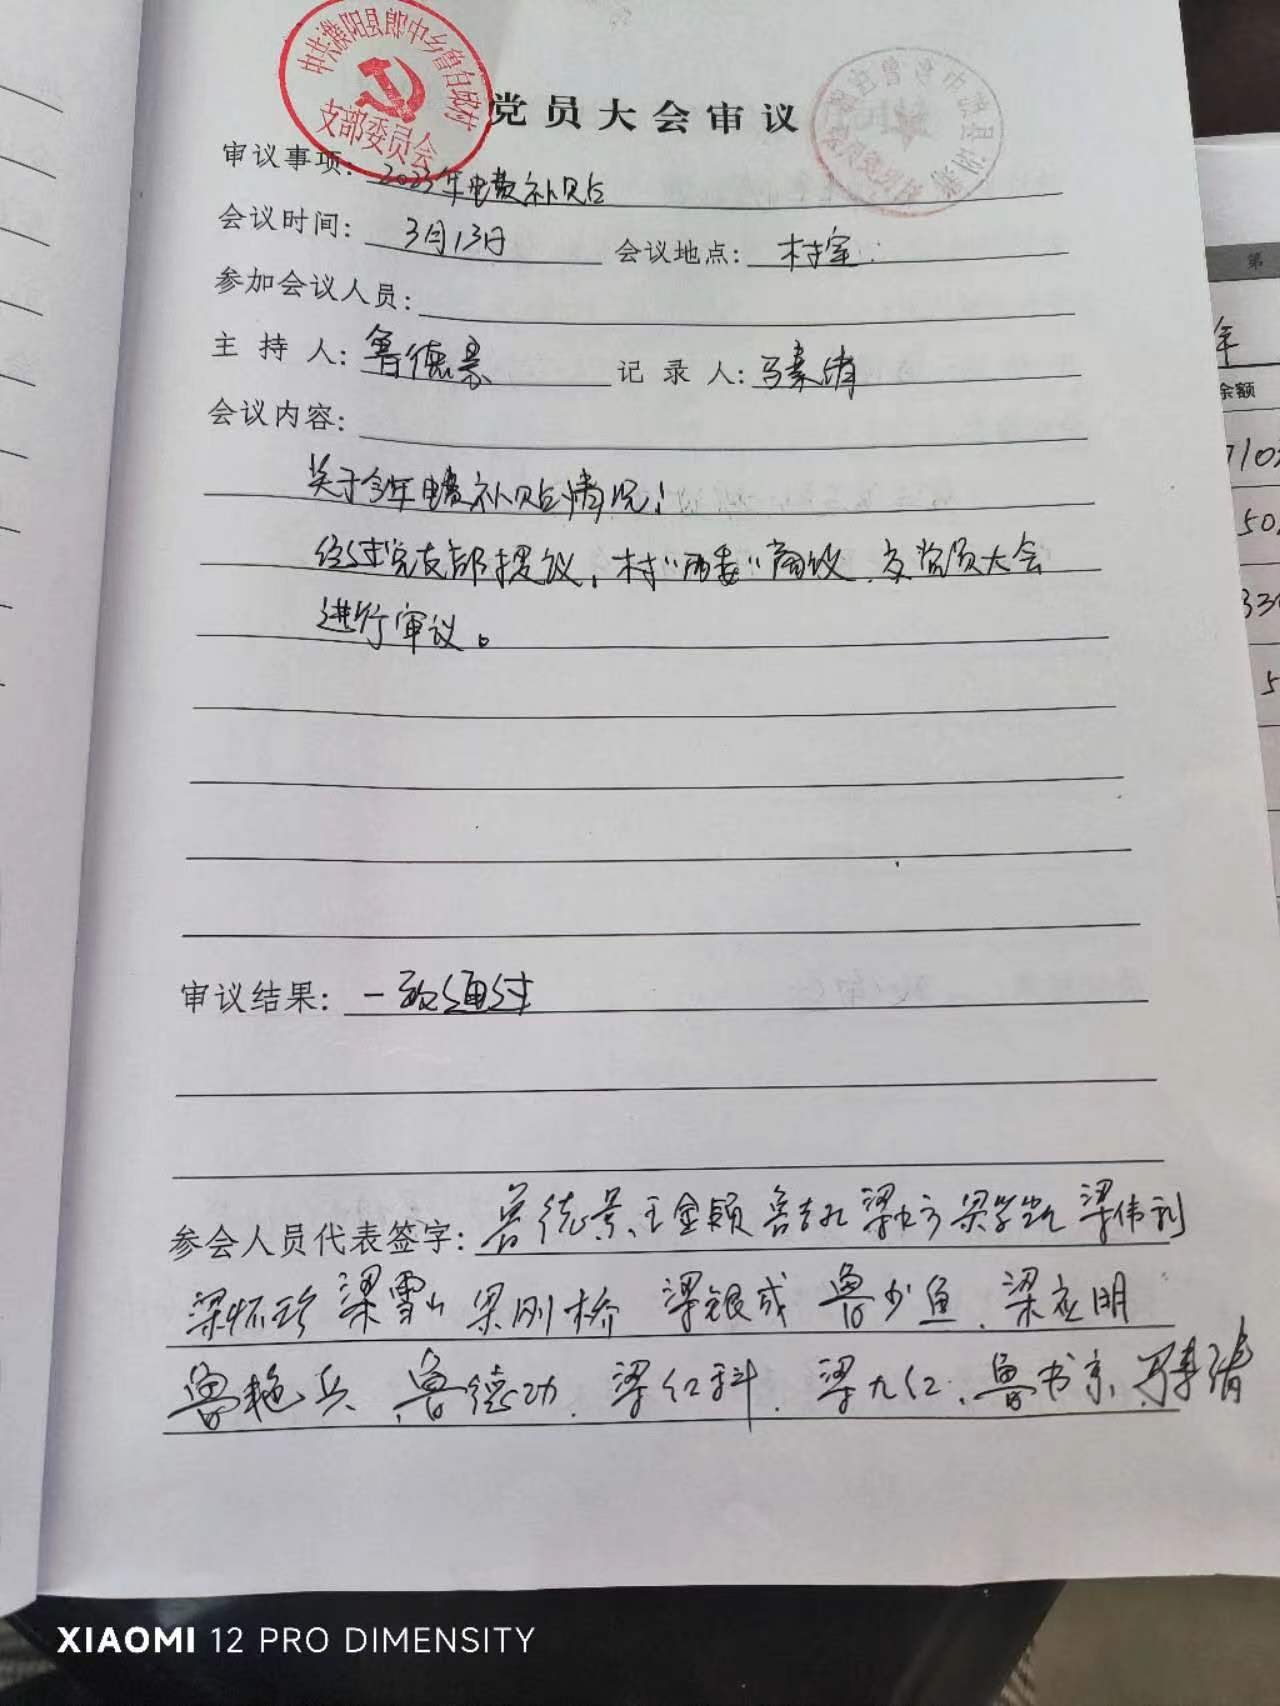 中共濮阳县郎中乡鲁占城村
支部委员会
党员大会审议
审议事项: 2023年电费补贴
会议时间: 3月13日 会议地点: 村室
参加会议人员:
主持人: 鲁德景 记录人: 马素清
会议内容:
关于今年电费补贴情况!
经过党支部提议,村"两委"商议,交党员大会
进行审议。
审议结果: 一致通过
参会人员代表签字: 鲁德景、王金颖 梁学凯 梁伟利
梁怀珍 梁雪山 梁刚桥 梁银成 鲁少鱼、梁应明
鲁艳兵、鲁德功、梁红科、梁九仁、鲁书京、马素清
第
年
余额
50
5
XIAOMI 12 PRO DIMENSITY